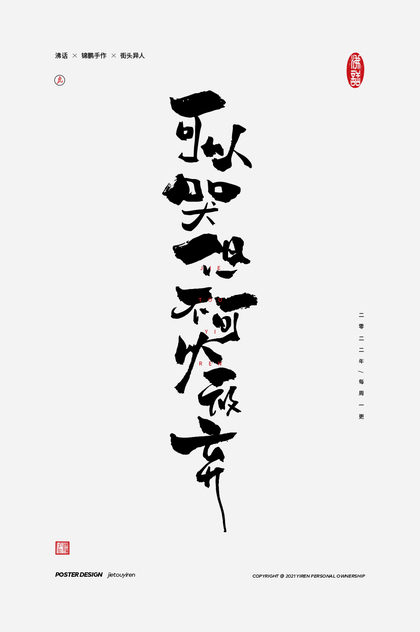 沸话 × 锦鹏手作 × 街头异人
佛話
可以
哭
但
不可
以
放
弃
JIE
TOU
YI
REN
二零二二年/每周一更
POSTER DESIGN jietouyiren
COPYRIGHT @ 2021 YIREN PERSONAL OWNERSHIP